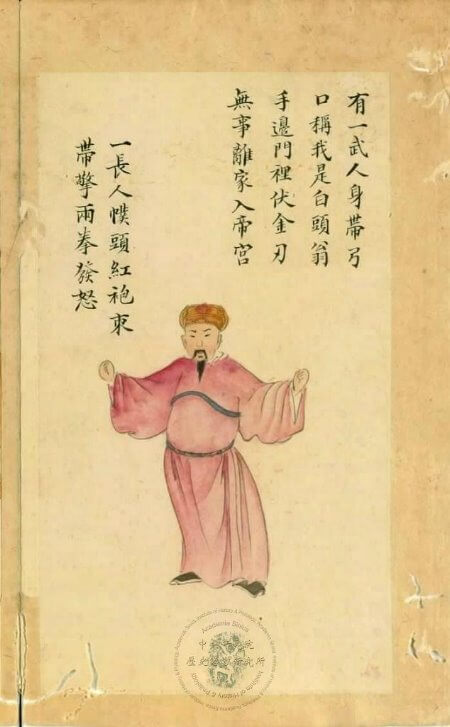 有一武人身帶弓
口稱我是白頭翁
手邊門裡伏金刃
無事離家入帝宮
一長人幞頭紅袍束
帶擎兩拳發怒
Academia Sinica
中央研究院
歷史語言研究所